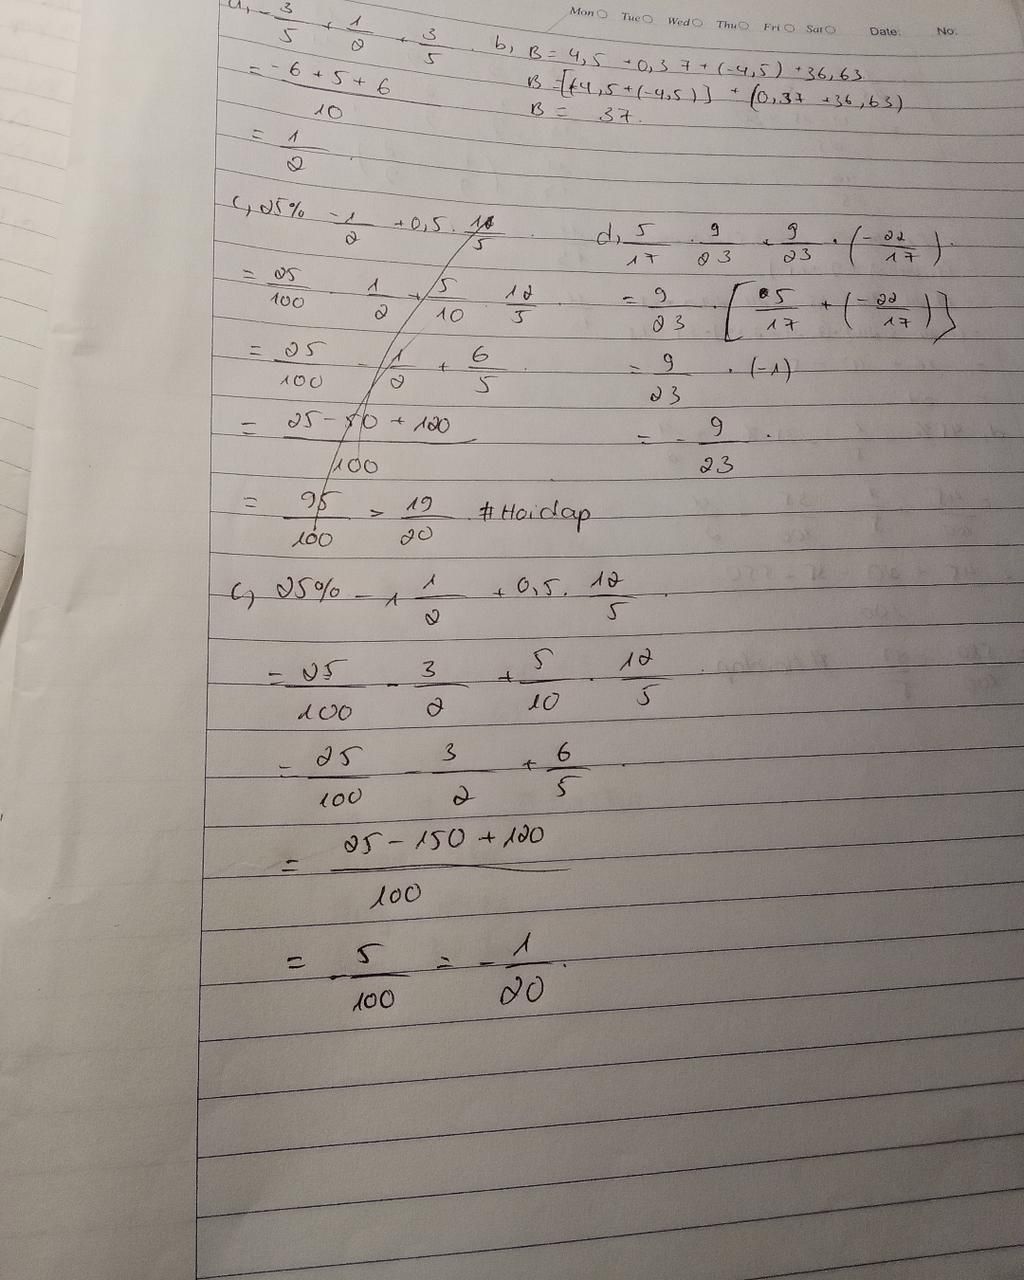 Mon Tue Wed Thu Fri Sat Date: No:
a, -3/5 + 1/2 + 3/5
= -6 + 5 + 6 / 10
= 1/2
b, B = 4,5 + 0,37 + (-4,5) + 36,63
B = [+4,5 + (-4,5)] + (0,37 + 36,63)
B = 37.
c, 25% - 1/2 + 0,5 . 12/5
= 25/100 - 1/2 + 5/10 . 12/5
= 25/100 - 1/2 + 6/5
= 25 - 50 + 120 / 100
= 95/100 = 19/20 #Hoidap
d, 5/17 . 9/23 + 9/23 . (-22/17)
= 9/23 . [5/17 + (-22/17)]
= 9/23 . (-1)
= -9/23 .
c, 25% - 1 1/2 + 0,5 . 12/5
= 25/100 - 3/2 + 5/10 . 12/5
= 25/100 - 3/2 + 6/5
= 25 - 150 + 120 / 100
= -5/100 = -1/20 .